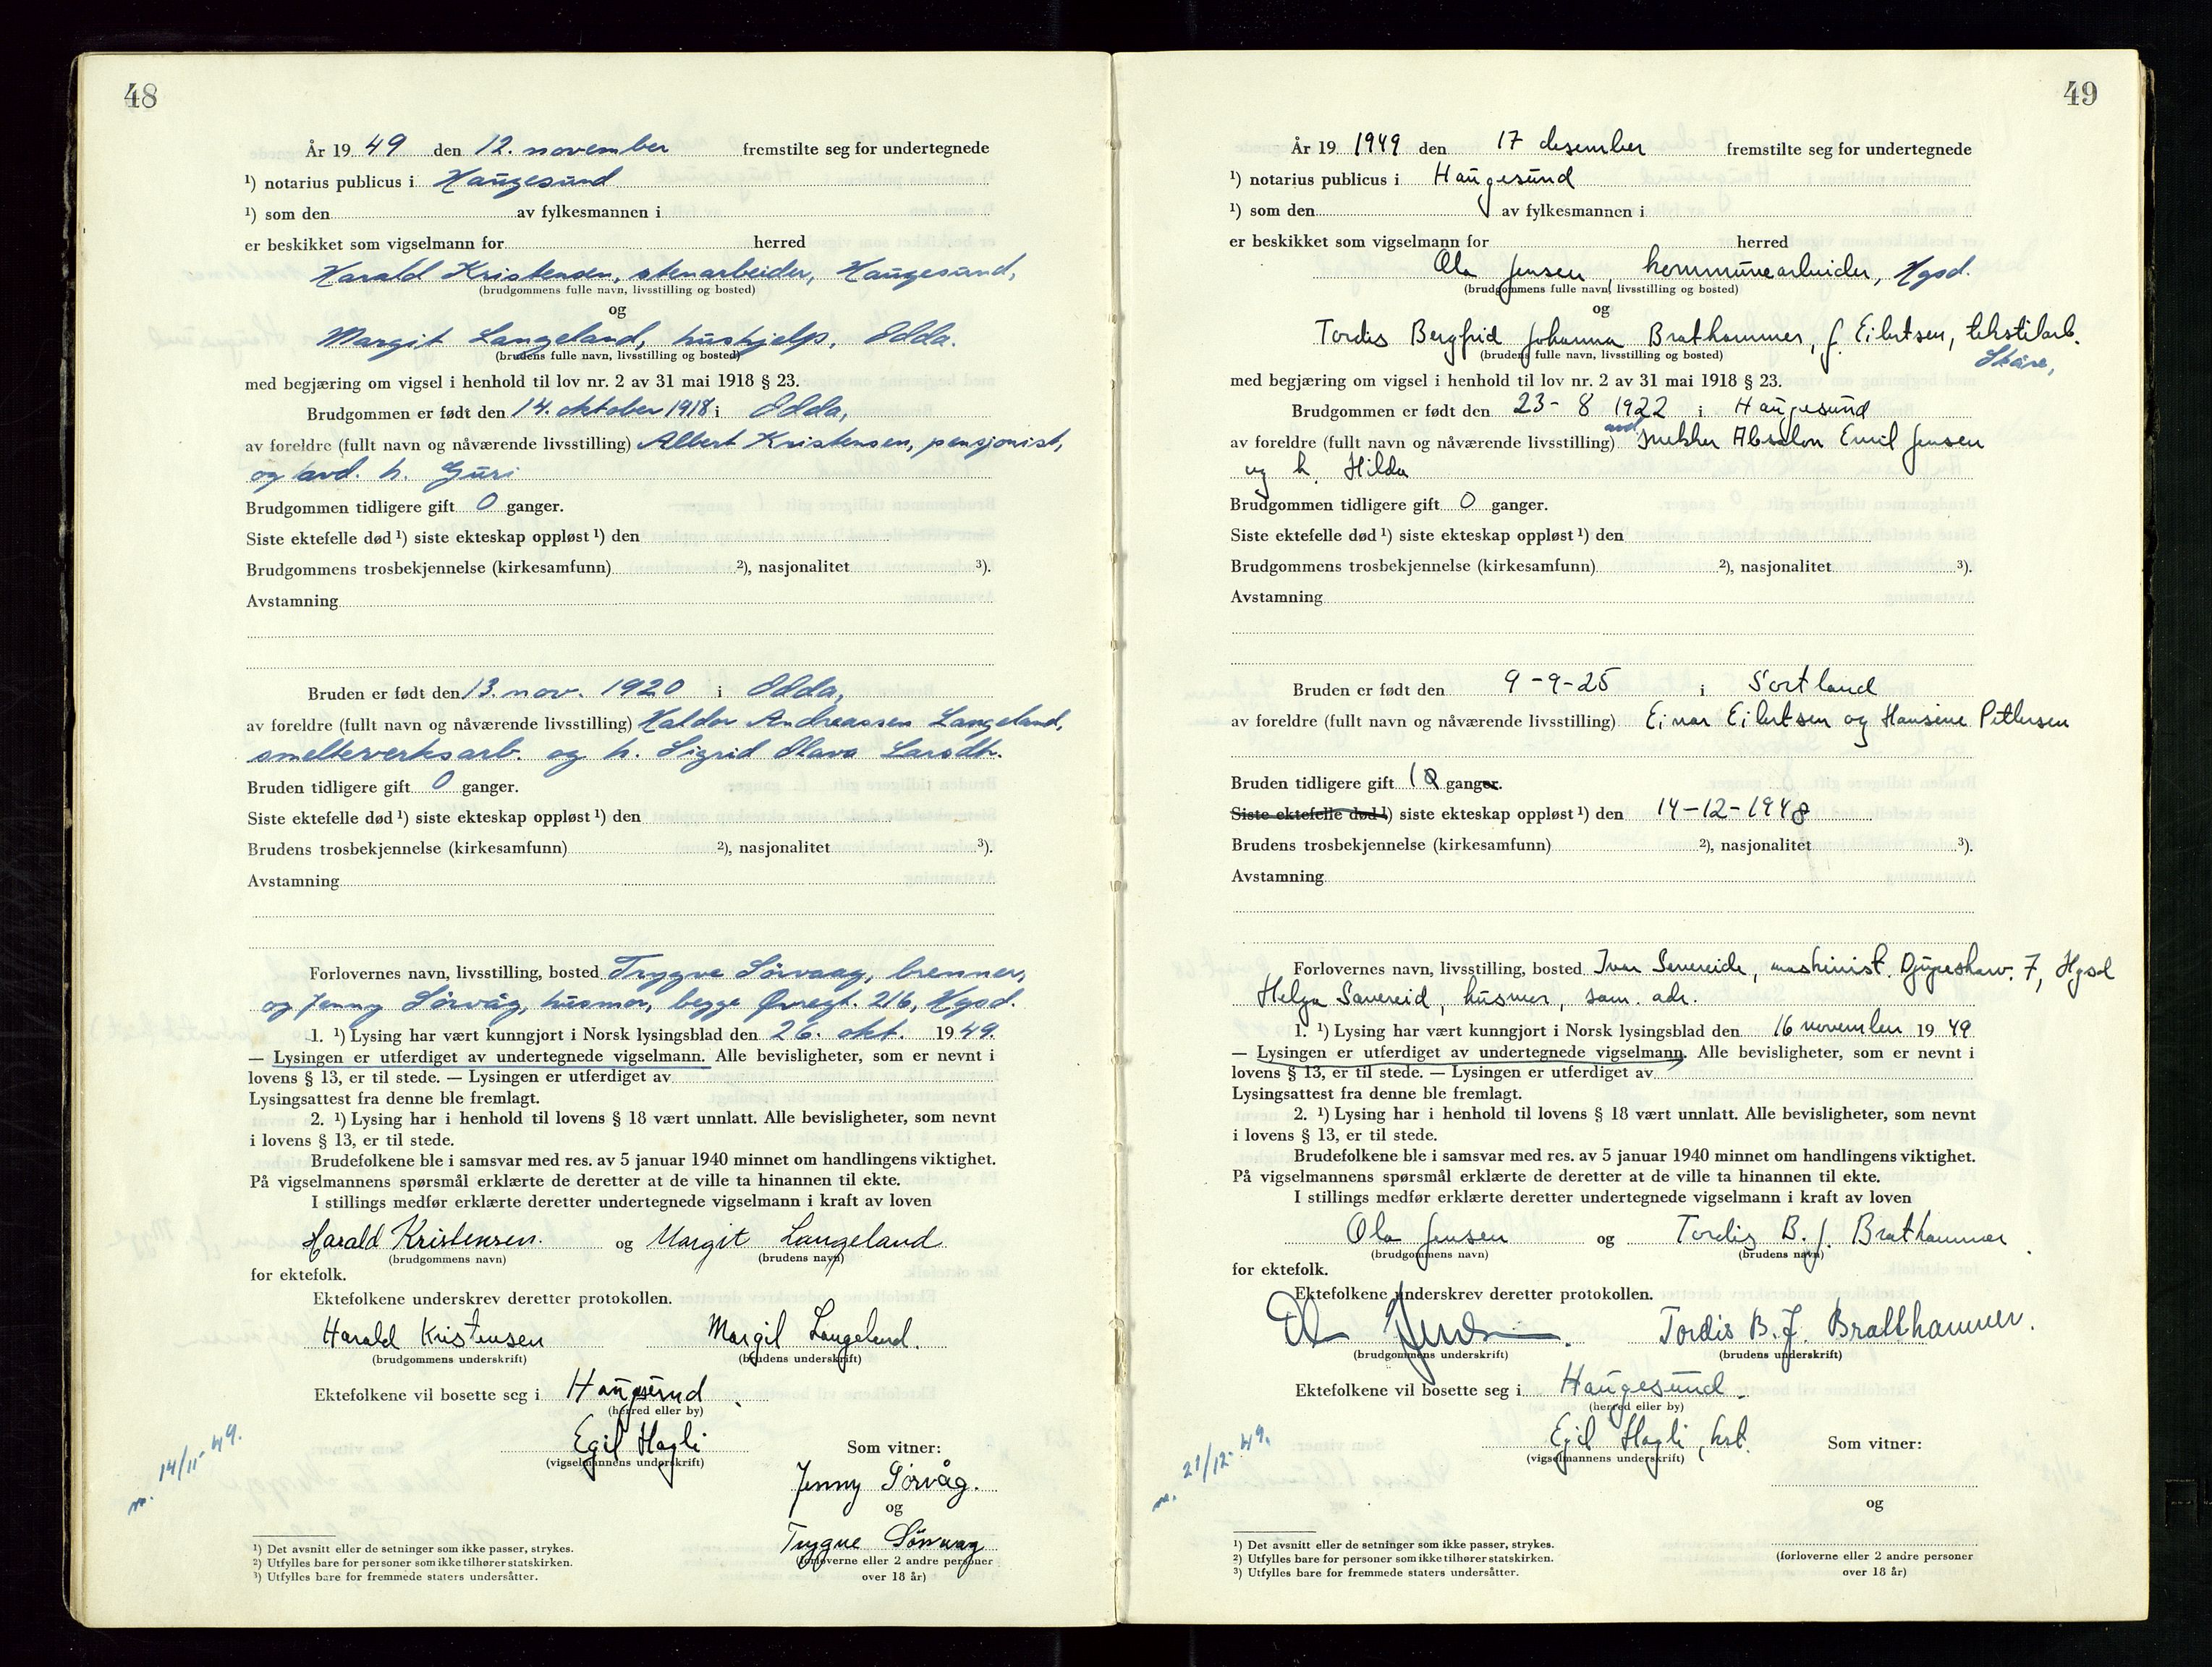 48
År 19 49 den 12. november fremstilte seg for undertegnede
¹) notarius publicus i Haugesund
¹) som den av fylkesmannen i
er beskikket som vigselmann for herred
Harald Kristensen, stenarbeider, Haugesund,
(brudgommens fulle navn, livsstilling og bosted)
og
Margit Langeland, hushjelp, Odda.
(brudens fulle navn, livsstilling og bosted)
med begjæring om vigsel i henhold til lov nr. 2 av 31 mai 1918 § 23.
Brudgommen er født den 14. oktober 1918 i Odda,
av foreldre (fullt navn og nåværende livsstilling) Albert Kristensen, pensjonist,
og avd. h. Guri
Brudgommen tidligere gift 0 ganger.
Siste ektefelle død ¹) siste ekteskap oppløst ¹) den
Brudgommens trosbekjennelse (kirkesamfunn) ²), nasjonalitet ³).
Avstamning
Bruden er født den 13. nov. 1920 i Odda,
av foreldre (fullt navn og nåværende livsstilling) Haldor Andreassen Langeland,
smelteverksarb. og h. Sigrid Olava Larsdtr.
Bruden tidligere gift 0 ganger.
Siste ektefelle død ¹) siste ekteskap oppløst ¹) den
Brudens trosbekjennelse (kirkesamfunn) ²), nasjonalitet ³).
Avstamning
Forlovernes navn, livsstilling, bosted Trygve Sörvaag, brenner,
og Jenny Sörvåg, husmor, begge Øvregt. 216, Hgsd.
1. ¹) Lysing har vært kunngjort i Norsk lysingsblad den 26. okt. 19 49.
— Lysingen er utferdiget av undertegnede vigselmann. Alle bevisligheter, som er nevnt i
lovens § 13, er til stede. — Lysingen er utferdiget av
Lysingsattest fra denne ble fremlagt.
2. ¹) Lysing har i henhold til lovens § 18 vært unnlatt. Alle bevisligheter, som nevnt
i lovens § 13, er til stede.
Brudefolkene ble i samsvar med res. av 5 januar 1940 minnet om handlingens viktighet.
På vigselmannens spørsmål erklærte de deretter at de ville ta hinannen til ekte.
I stillings medfør erklærte deretter undertegnede vigselmann i kraft av loven
Harald Kristensen. og Margit Langeland
(brudgommens navn) (brudens navn)
for ektefolk.
Ektefolkene underskrev deretter protokollen.
Harald Kristensen Margit Langeland.
(brudgommens underskrift) (brudens underskrift)
Ektefolkene vil bosette seg i Haugesund.
(herred eller by)
Egil Hagli Som vitner:
(vigselmannens underskrift)
Jenny Sörvåg.
og
Trygve Sörvaag
(forloverne eller 2 andre personer
over 18 år)
m. 14/11-49.
¹) Det avsnitt eller de setninger som ikke passer, strykes.
²) Utfylles bare for personer som ikke tilhører statskirken.
³) Utfylles bare for fremmede staters undersåtter.
49
År 19 1949 den 17 desember fremstilte seg for undertegnede
¹) notarius publicus i Haugesund
¹) som den av fylkesmannen i
er beskikket som vigselmann for herred
Ola Jensen, kommunearbeider, Hgsd.
(brudgommens fulle navn, livsstilling og bosted)
og
Tordis Bergfrid Johanna Brathammer, f. Eilertsen, tekstilarb.
Skåre,
(brudens fulle navn, livsstilling og bosted)
med begjæring om vigsel i henhold til lov nr. 2 av 31 mai 1918 § 23.
Brudgommen er født den 23-8 1922 i Haugesund
av foreldre (fullt navn og nåværende livsstilling) avd. snekker Absalon Emil Jensen
og h. Hilda
Brudgommen tidligere gift 0 ganger.
Siste ektefelle død ¹) siste ekteskap oppløst ¹) den
Brudgommens trosbekjennelse (kirkesamfunn) ²), nasjonalitet ³).
Avstamning
Bruden er født den 9-9-25 i Sortland
av foreldre (fullt navn og nåværende livsstilling) Einar Eilertsen og Hansine Pettersen
Bruden tidligere gift 1 ganger.
Siste ektefelle død ¹) siste ekteskap oppløst ¹) den 14-12-1948
Brudens trosbekjennelse (kirkesamfunn) ²), nasjonalitet ³).
Avstamning
Forlovernes navn, livsstilling, bosted Ivar Sævereide, maskinist, 7, Hgsd
Helga Sævereid, husmor, sam. adr.
1. ¹) Lysing har vært kunngjort i Norsk lysingsblad den 16 november 19 49
— Lysingen er utferdiget av undertegnede vigselmann. Alle bevisligheter, som er nevnt i
lovens § 13, er til stede. — Lysingen er utferdiget av
Lysingsattest fra denne ble fremlagt.
2. ¹) Lysing har i henhold til lovens § 18 vært unnlatt. Alle bevisligheter, som nevnt
i lovens § 13, er til stede.
Brudefolkene ble i samsvar med res. av 5 januar 1940 minnet om handlingens viktighet.
På vigselmannens spørsmål erklærte de deretter at de ville ta hinannen til ekte.
I stillings medfør erklærte deretter undertegnede vigselmann i kraft av loven
Ola Jensen og Tordis B. J. Brathammer
(brudgommens navn) (brudens navn)
for ektefolk.
Ektefolkene underskrev deretter protokollen.
Ola Jensen Tordis B. J. Bratthammer.
(brudgommens underskrift) (brudens underskrift)
Ektefolkene vil bosette seg i Haugesund.
(herred eller by)
Egil Hagli, kst. Som vitner:
(vigselmannens underskrift)
og
(forloverne eller 2 andre personer
over 18 år)
m. 21/12-49.
¹) Det avsnitt eller de setninger som ikke passer, strykes.
²) Utfylles bare for personer som ikke tilhører statskirken.
³) Utfylles bare for fremmede staters undersåtter.